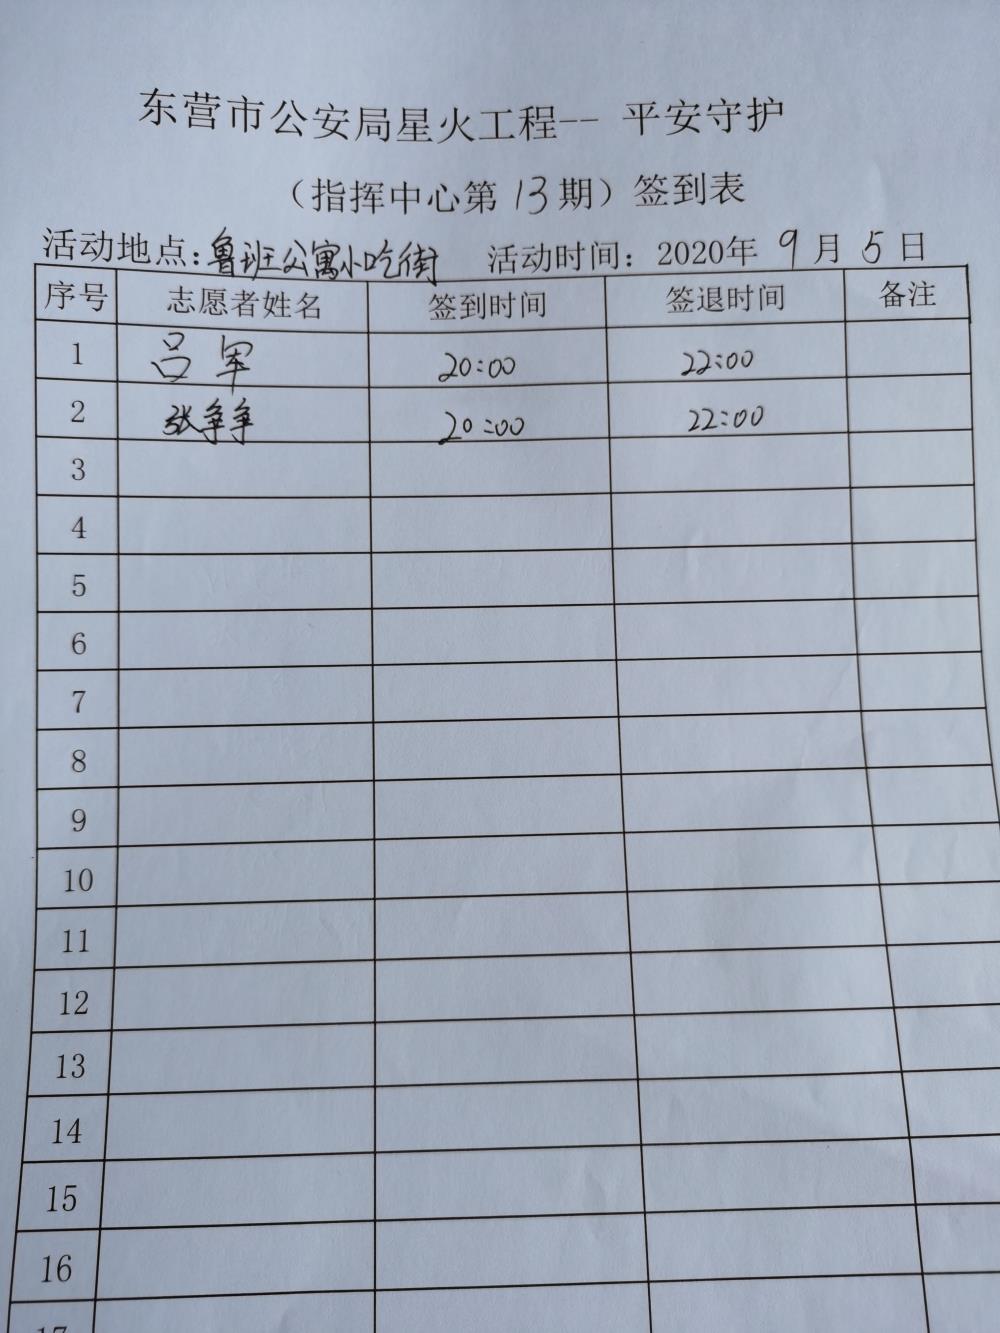 东营市公安局星火工程-- 平安守护
（指挥中心第 13 期）签到表
活动地点：鲁班公寓小吃街 活动时间：2020年 9 月 5 日
序号 志愿者姓名 签到时间 签退时间 备注
1 吕军 20:00 22:00
2 张争争 20:00 22:00
3
4
5
6
7
8
9
10
11
12
13
14
15
16
17